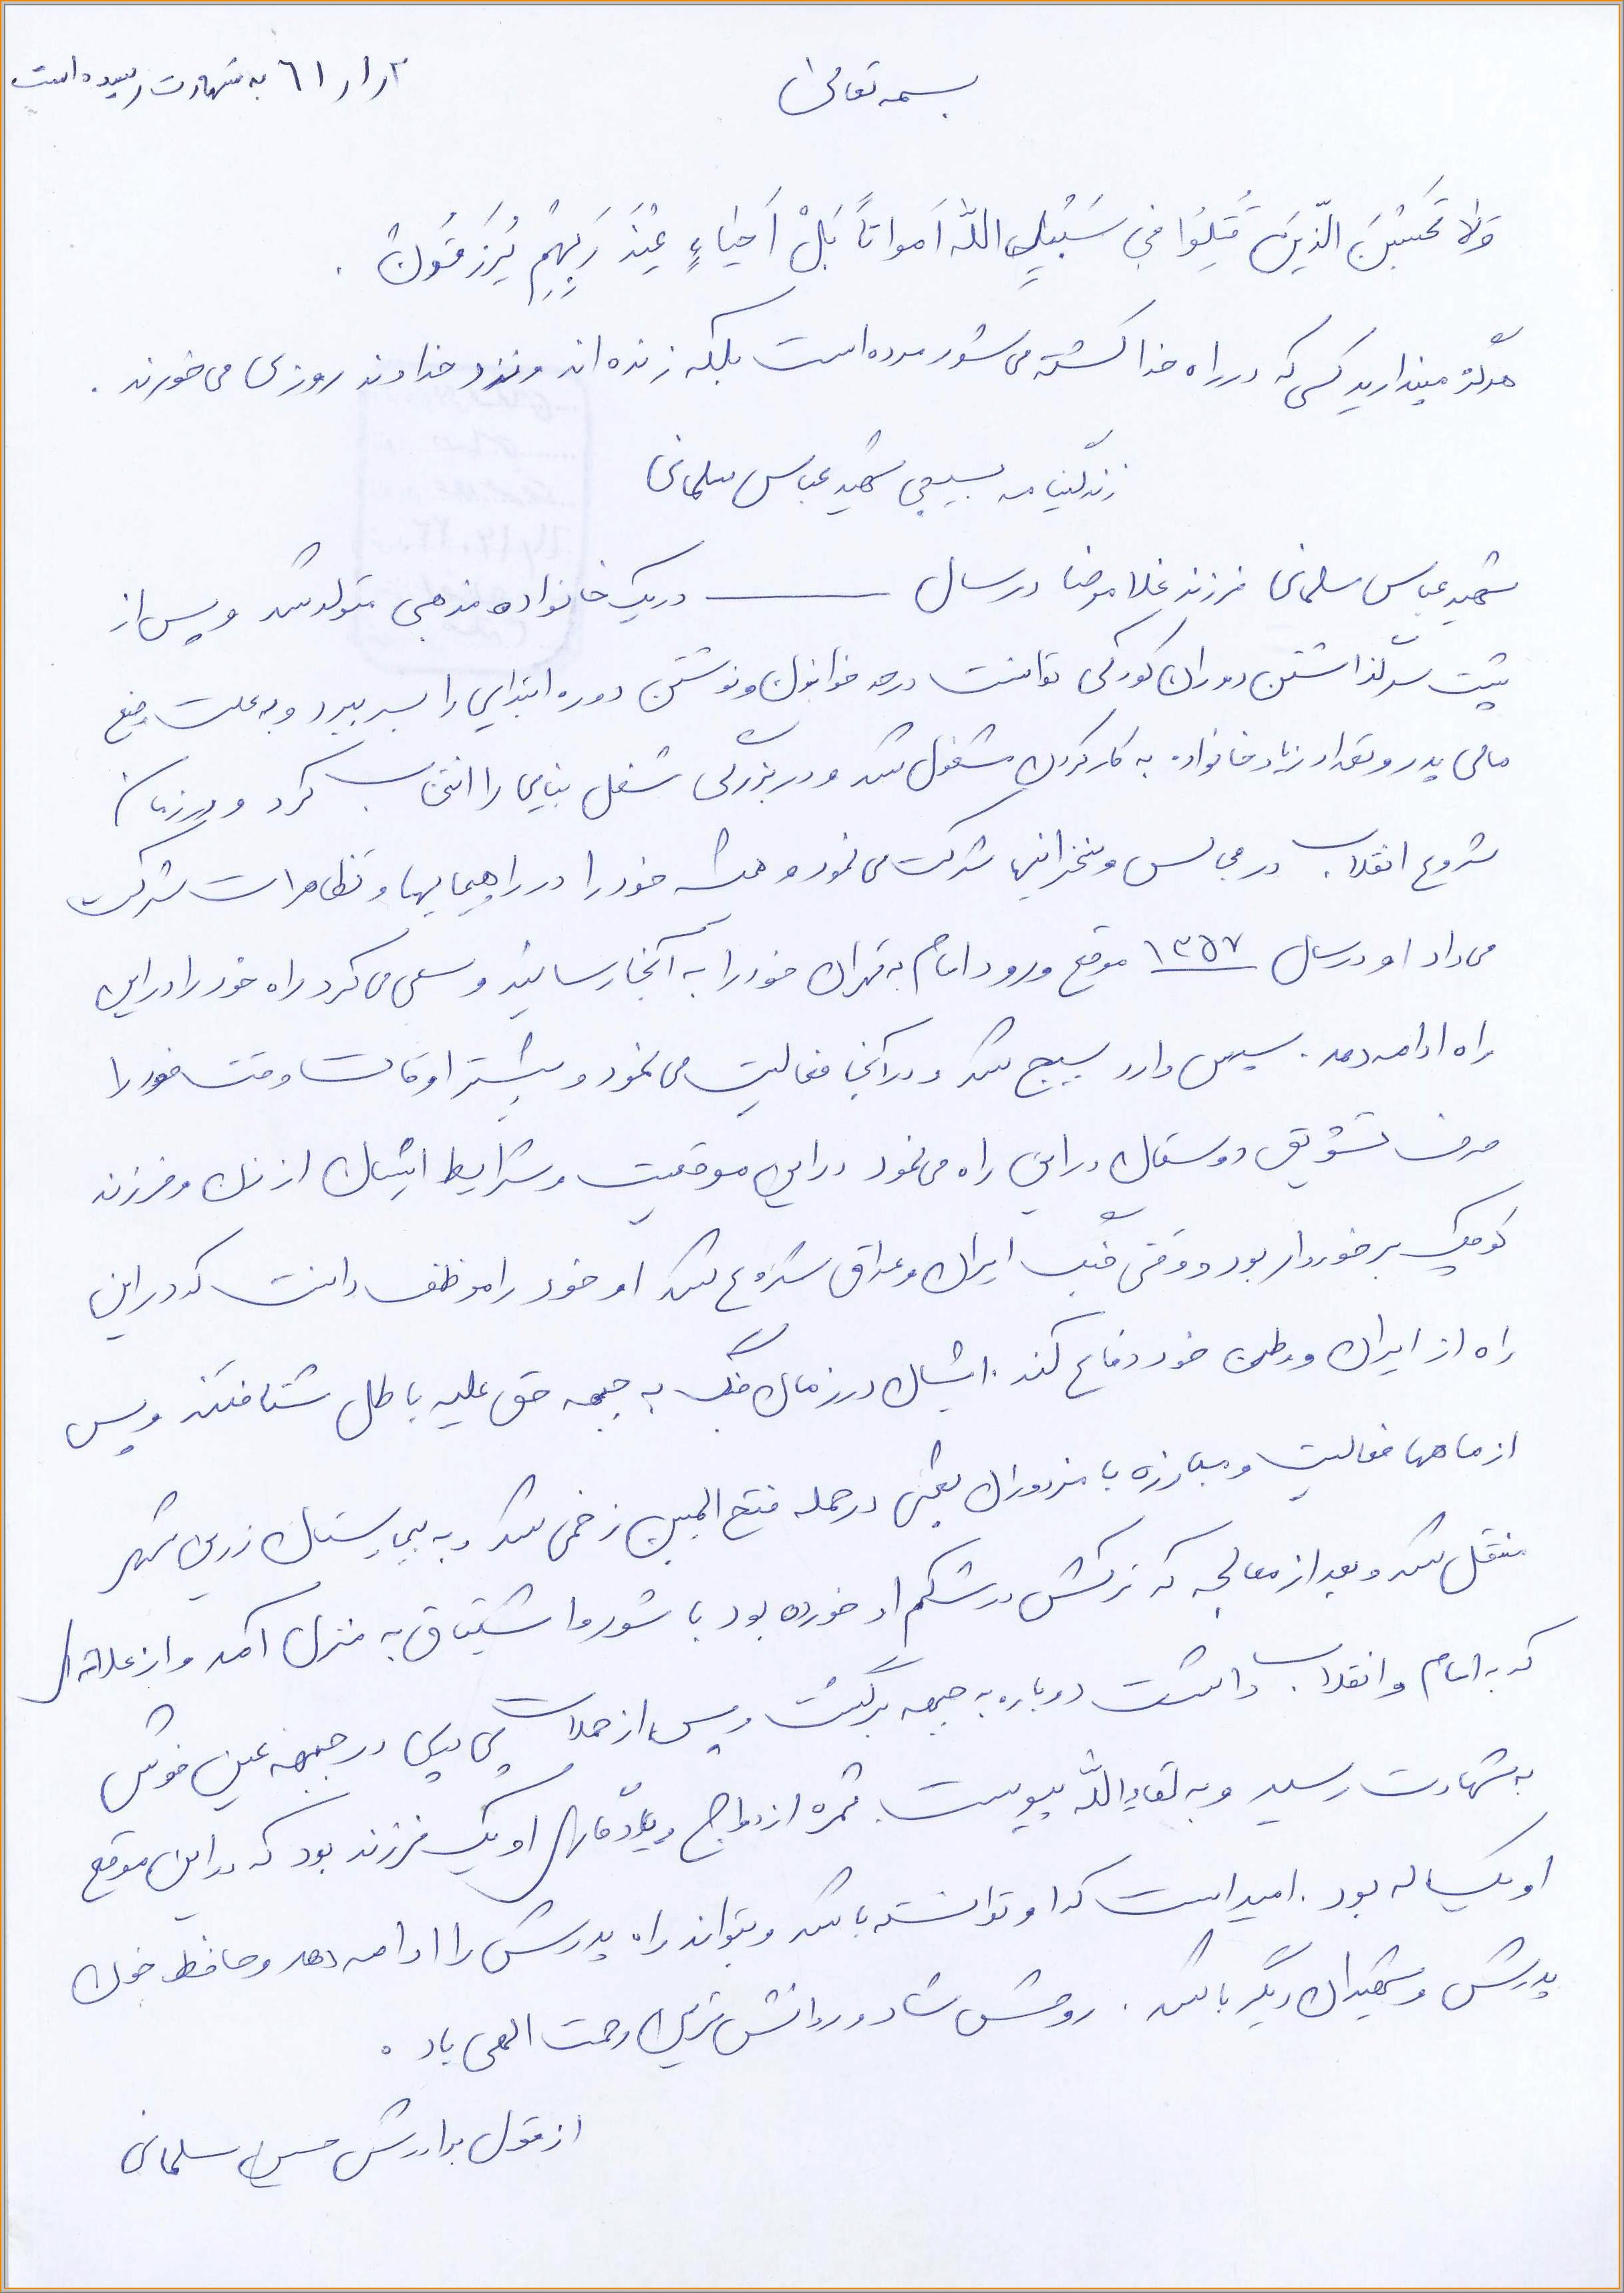 بسمه تعالی
۲ر۱ر۶۱ به شهادت رسیده است
وَلا تَحسَبَنَ الّذینَ قُتِلوُا فی سَبیلِ اللّه اَمواتاً بَلْ اَحیاءٍ عِنْدَ رَبِهِمْ یُرزَقوُنْ .
هرگز مپندارید کسی که در راه خدا کشته می شود مرده است بلکه زنده اند و نزد خداوند روزی می خورند .
زندگینامه بسیجی شهید عباس سلمانی
شهید عباس سلمانی فرزند غلامرضا در سال ـــــــــ در یک خانواده مذهبی متولد شد و پس از
پشت سر گذاشتن دوران کودکی توانست در حد خواندن و نوشتن دوره ابتدایی را بسر ببرد و به علت وضع
مالی پدر و تعداد زیاد خانواده به کار کردن مشغول شد و در بزرگی شغل بنایی را انتخاب کرد و در زمان
شروع انقلاب در مجالس و سخنرانیها شرکت می نمود و همیشه خود را در راهپیمایها و تظاهرات شرکت
می داد او در سال ۱۳۵۷ موقع ورود امام به تهران خود را به آنجا رسانید و سعی می کرد راه خود را در این
راه ادامه دهد . سپس وارد بسیج شد و در آنجا فعالیت می نمود و بیشتر اوقات وقت خود را
صرف تشویق دوستان در این راه می نمود در این موقعیت و شرایط ایشان از زن و فرزند
کوچک برخوردار بود و وقتی جنگ ایران و عراق شروع شد او خود را موظف دانست که در این
راه از ایران و وطن خود دفاع کند . ایشان در زمان جنگ به جبهه حق علیه باطل شتافتند و پس
از ماهها فعالیت و مبارزه با مزدوران بعثی در حمله فتح المبین زخمی شد و به بیمارستان زرین شهر
منتقل شد و بعد از معالجه که ترکش در شکم او خورده بود با شور و اشتیاق به منزل آمد و از علاقه ای
که به امام و انقلاب داشت دوباره به جبهه برگشت و پس از حملات پی درپی در جبهه عین خوش
به شهادت رسید و به لقاءاللّه پیوست . ثمره ازدواج و یادگار او یک فرزند بود که در این موقع
او یکساله بود . امید است که او توانسته باشد و بتواند راه پدرش را ادامه دهد و حافظ خون
پدرش و شهیدان دیگر باشد . روحش شاد و روانش قرین رحمت الهی باد .
از قول برادرش حسین سلمانی